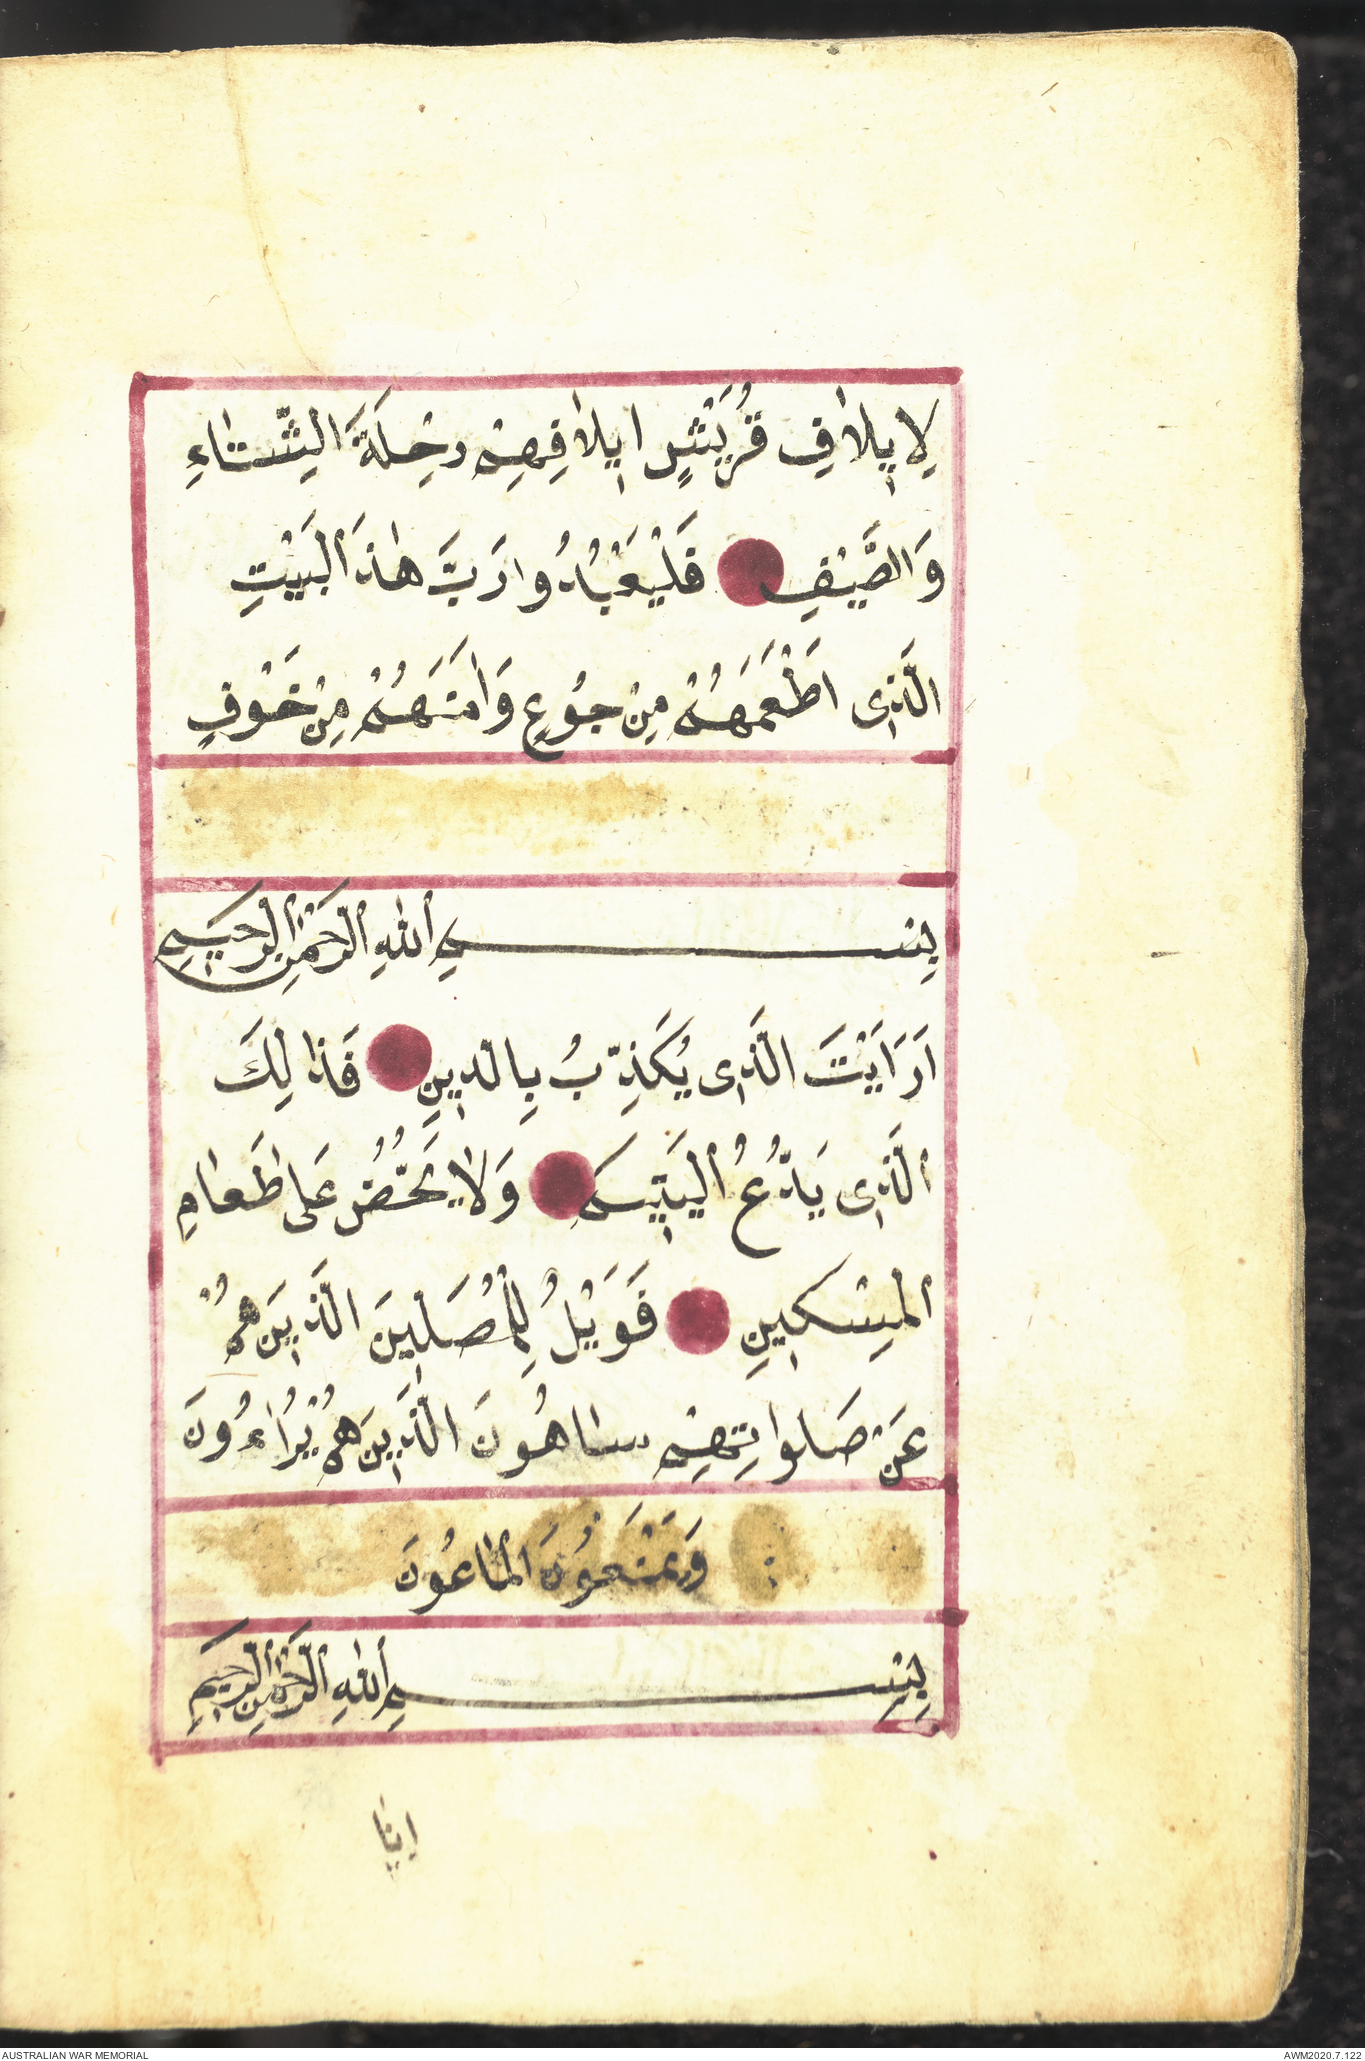 لِاِيلَافِ قُرَيْشٍ اِيلَافِهِمْ رِحْلَةَ الشِّتَاءِ
وَالصَّيْفِ فَلْيَعْبُدُوا رَبَّ هٰذَا الْبَيْتِ
الَّذِى اَطْعَمَهُمْ مِنْ جُوعٍ وَاٰمَنَهُمْ مِنْ خَوْفٍ
بِسْمِ اللّٰهِ الرَّحْمٰنِ الرَّحِيمِ
اَرَاَيْتَ الَّذِى يُكَذِّبُ بِالدِّينِ فَذَالِكَ
الَّذِى يَدُعُّ الْيَتِيمَ وَلَا يَحُضُّ عَلٰى طَعَامِ
الْمِسْكِينِ فَوَيْلٌ لِلْمُصَلِّينَ الَّذِينَ هُمْ
عَنْ صَلَواتِهِمْ سَاهُونَ الَّذِينَ هُمْ يُرَاءُونَ
وَيَمْنَعُونَ الْمَاعُونَ
بِسْمِ اللّٰهِ الرَّحْمٰنِ الرَّحِيمِ
انا
AUSTRALIAN WAR MEMORIAL
AWM2020.7.122